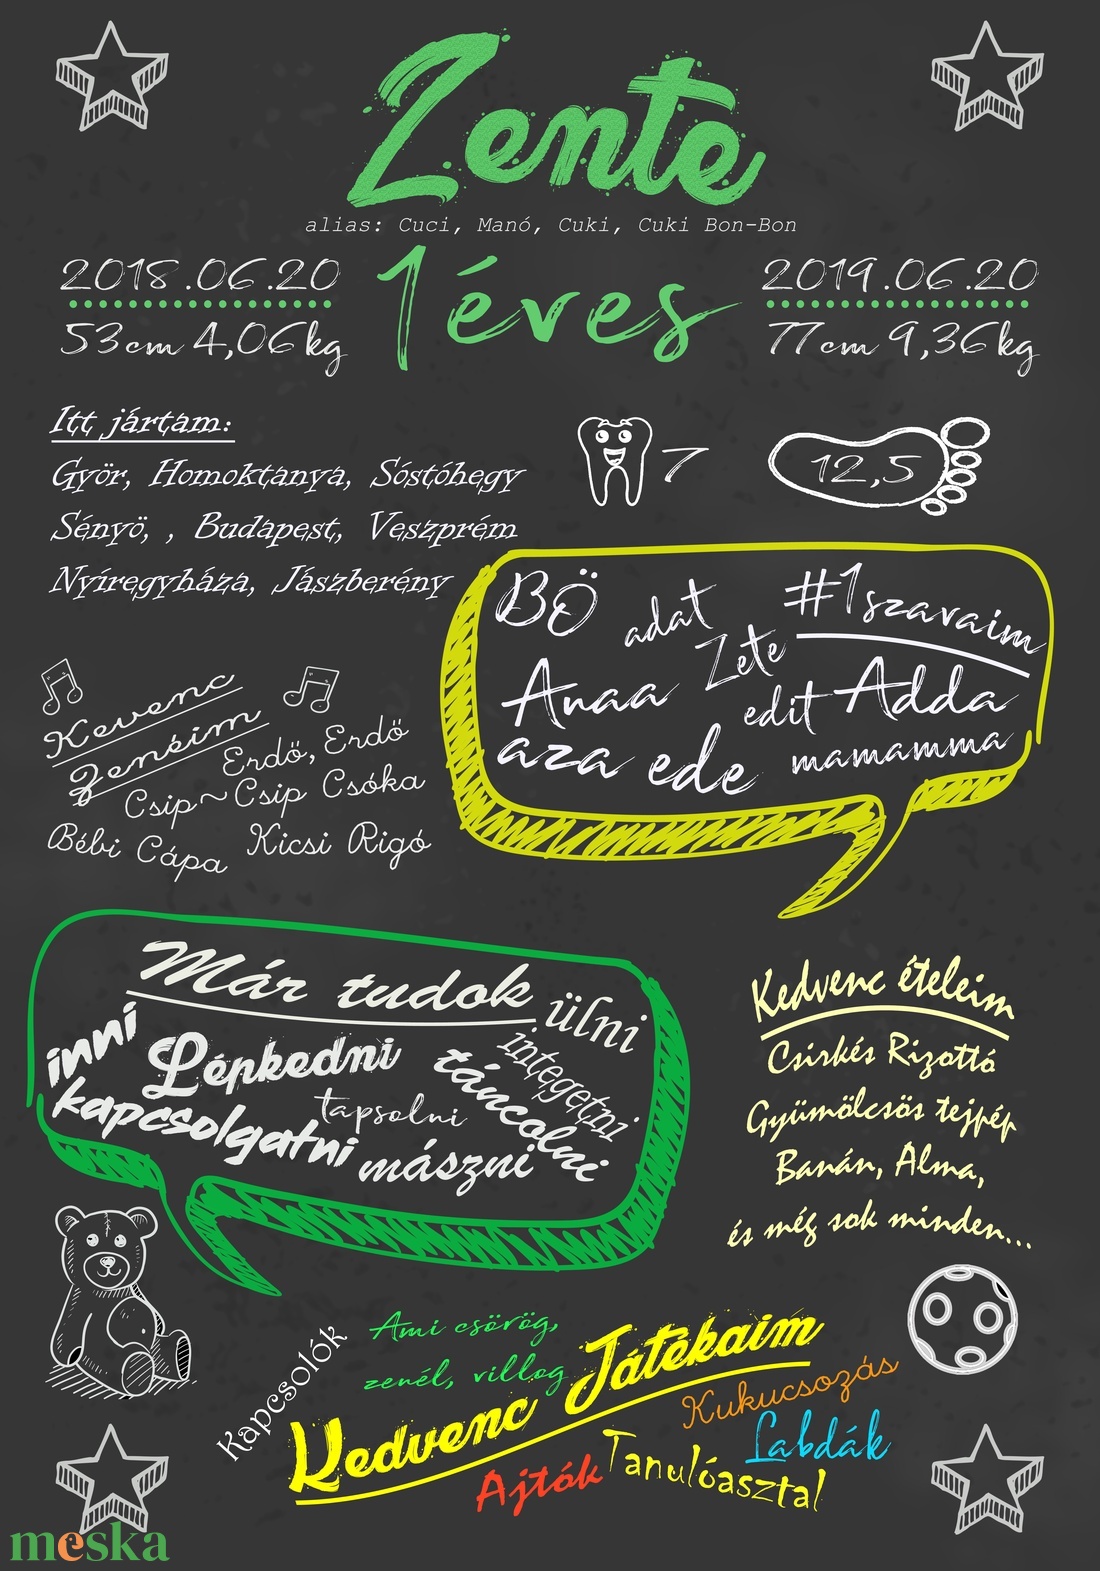 Zente
alias: Cuci, Manó, Cuki, Cuki Bon-Bon
1 éves
2018.06.20
53cm 4,06kg
2019.06.20
77cm 9,36kg
Itt jártam:
Győr, Homoktanya, Sóstóhegy
Sényö, , Budapest, Veszprém
Nyíregyháza, Jászberény
7
12,5
#1szavaim
BÖ
adat
Zete
Anaa
edit
Adda
aza
ede
mamamma
Kevenc
Zenéim
Erdő, Erdő
Csip~Csip Csóka
Bébi Cápa
Kicsi Rigó
Már tudok
ülni
inni
Lépkedni
integetni
táncolni
tapsolni
kapcsolgatni
mászni
Kedvenc ételeim
Csirkés Rizottó
Gyümölcsös tejpép
Banán, Alma,
és még sok minden...
Kedvenc Játékaim
Kapcsolók
Ami csörög,
zenél, villog
Kukucsozás
Labdák
Ajtók
Tanulóasztal
meska